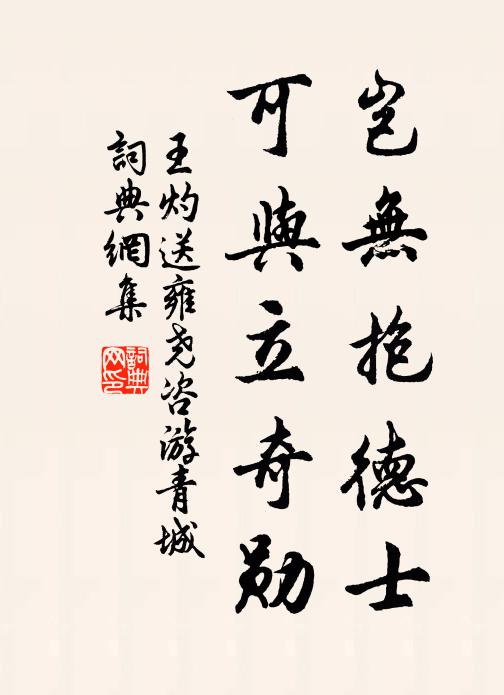 豈無抱德士
可與立奇勛
王灼送雍尧咨游青城
詞典網集
詞典
网印